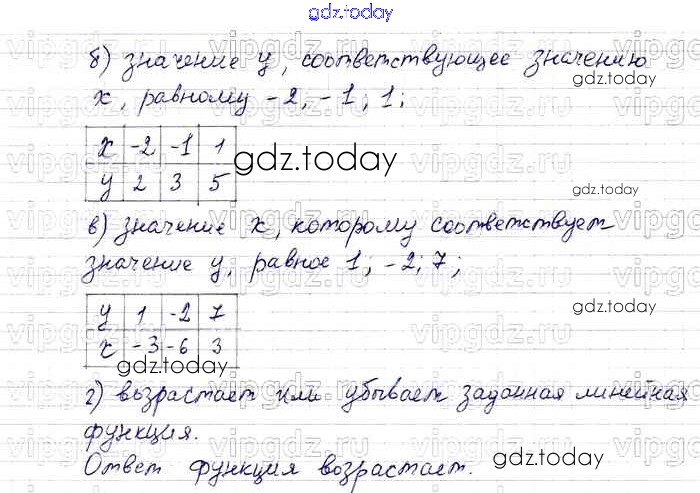 gdz.today
б) значение y, соответствующее значению
gdz.today
x, равному -2, -1; 1;
x -2 -1 1
y 2 3 5
gdz.today
gdz.today
в) значение x, которому соответствует
значение y, равное 1; -2; 7;
y 1 -2 7
x -3 -6 3
gdz.today
gdz.today
г) возрастает или убывает заданная линейная
функция.
Ответ функция возрастает.
gdz.today
vipgdz.ru